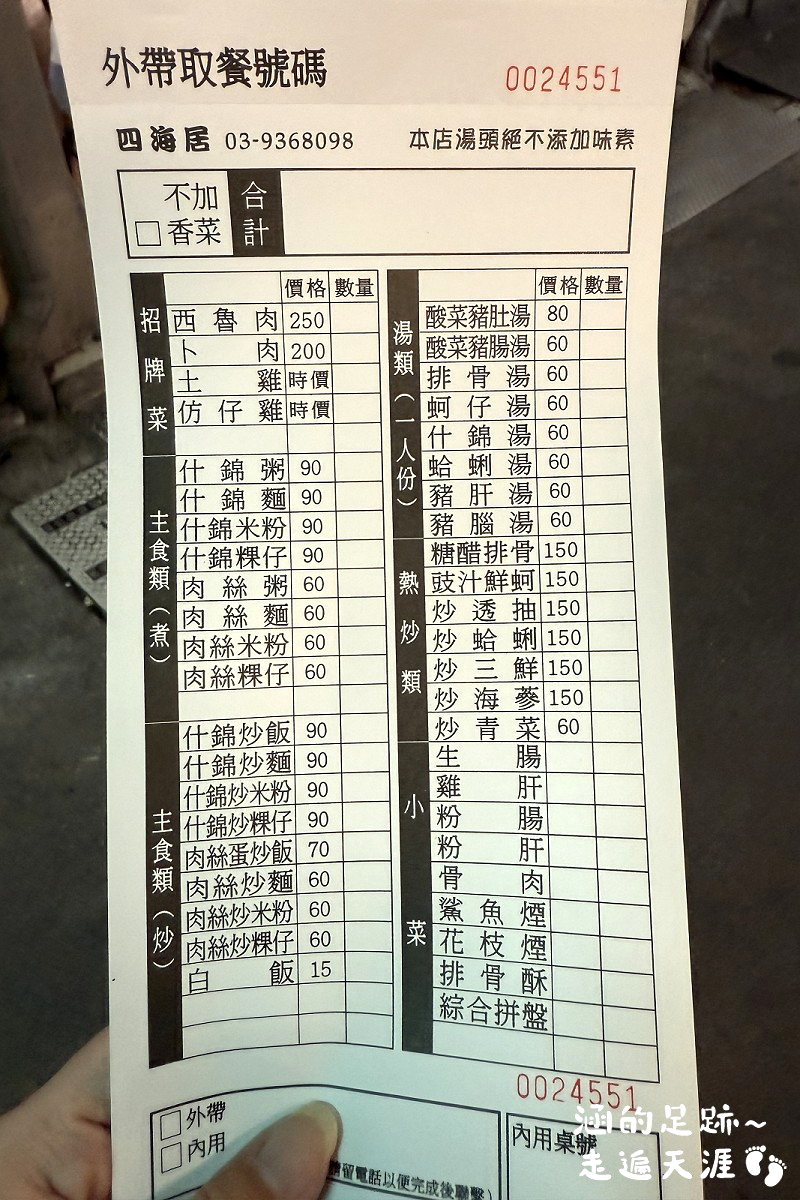 外帶取餐號碼 0024551
四海居 03-9368098 本店湯頭絕不添加味素
不加
□香菜
合計
招牌菜
價格 數量
西魯肉 250
卜肉 200
土雞 時價
仿仔雞 時價
主食類（煮）
什錦粥 90
什錦麵 90
什錦米粉 90
什錦粿仔 90
肉絲粥 60
肉絲麵 60
肉絲米粉 60
肉絲粿仔 60
主食類（炒）
什錦炒飯 90
什錦炒麵 90
什錦炒米粉 90
什錦炒粿仔 90
肉絲蛋炒飯 70
肉絲炒麵 60
肉絲炒米粉 60
肉絲炒粿仔 60
白飯 15
湯類（一人份）
價格 數量
酸菜豬肚湯 80
酸菜豬腸湯 60
排骨湯 60
蚵仔湯 60
什錦湯 60
蛤蜊湯 60
豬肝湯 60
豬腦湯 60
熱炒類
糖醋排骨 150
豉汁鮮蚵 150
炒透抽 150
炒蛤蜊 150
炒三鮮 150
炒海蔘 150
炒青菜 60
小菜
生腸
雞肝
粉腸
粉肝
骨肉
鯊魚煙
花枝煙
排骨酥
綜合拼盤
0024551
□外帶
□內用
請留電話以便完成後聯繫）
內用桌號
涵的足跡~
走遍天涯